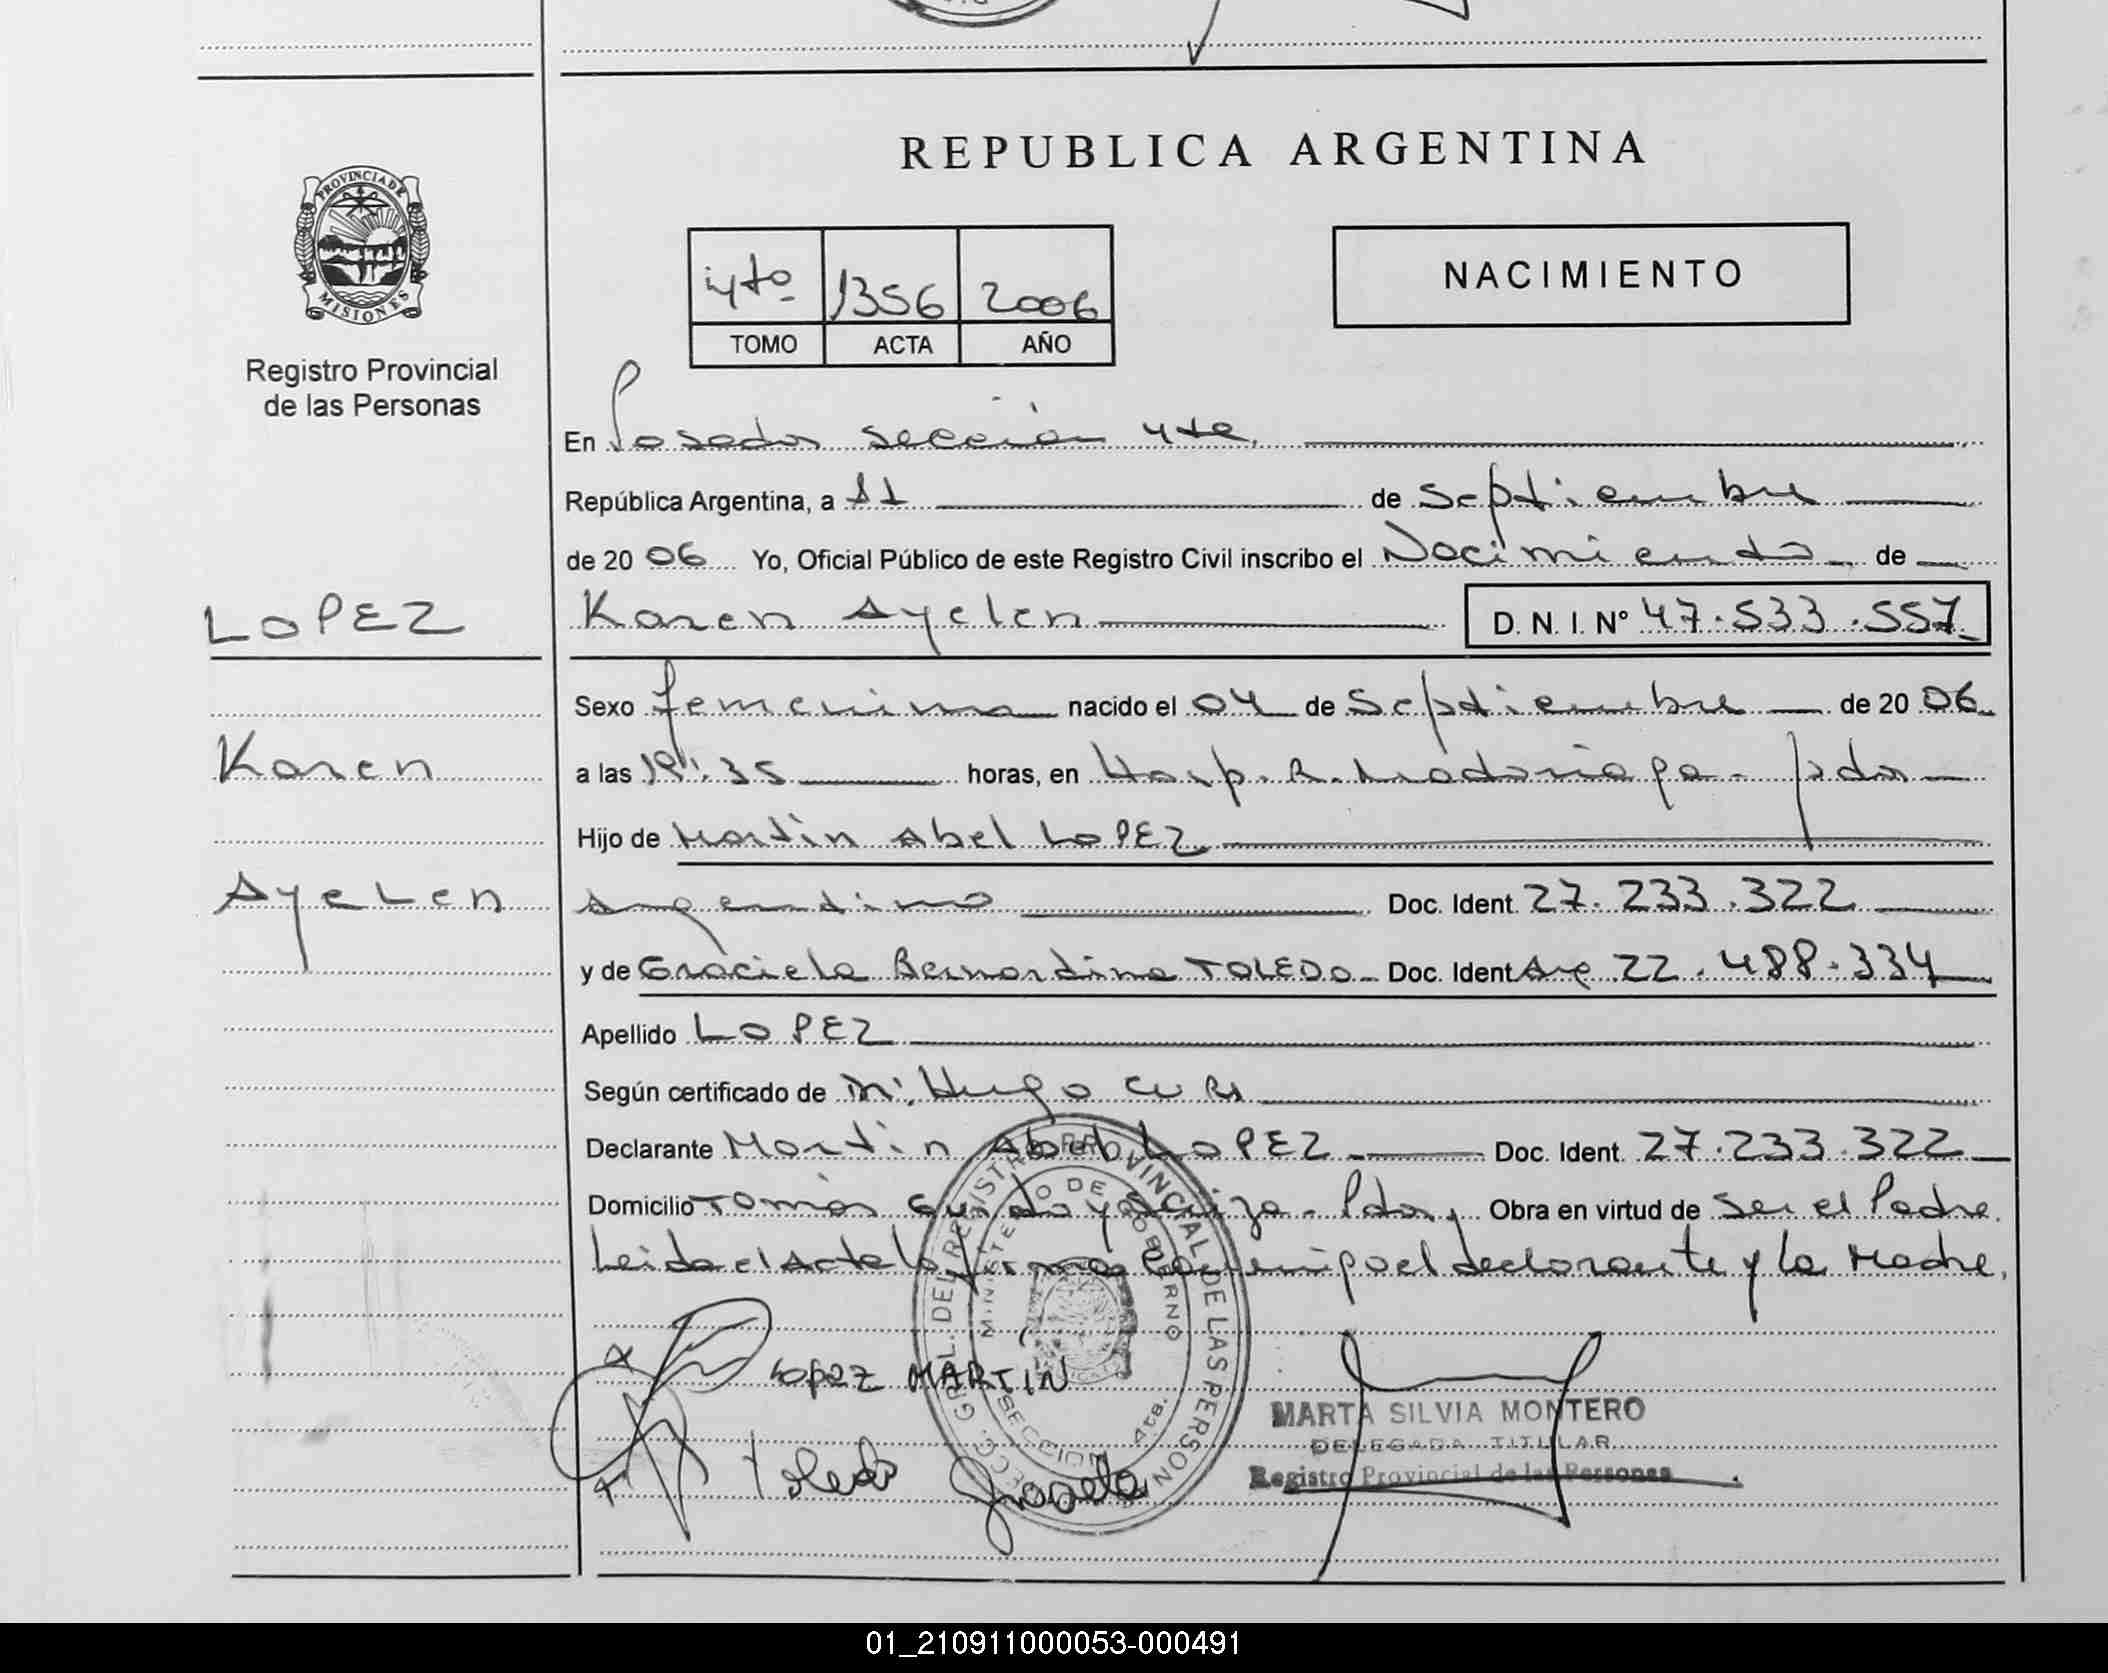 REPUBLICA ARGENTINA
PROVINCIA DE
MISIONES
Registro Provincial
de las Personas
4to 1356 2006
TOMO ACTA AÑO
NACIMIENTO
En Posadas sección 4ta.
República Argentina, a 11 de Septiembre
de 2006 Yo, Oficial Público de este Registro Civil inscribo el Nacimiento de
LOPEZ
Karen Ayelen D. N. I. Nº 47.533.557
Sexo femenino nacido el 04 de Septiembre de 2006
Karen
a las 19:35 horas, en Hosp. R. Madariaga - Pdas
Hijo de Martin Abel LOPEZ
Ayelen
Argentino Doc. Ident. 27.233.322
y de Graciela Bernardina TOLEDO Doc. Ident Arg 22.488.334
Apellido LOPEZ
Según certificado de Hugo
Declarante Martin Abel LOPEZ Doc. Ident. 27.233.322
Domicilio Tomás Guido y - Pdas, Obra en virtud de ser el Padre.
Leida el Acta la firman conmigo el declarante y la Madre.
DIRECC. GRAL. DEL REGISTRO PROVINCIAL DE LAS PERSONAS
MINISTERIO DE GOBIERNO
SECCION 4ta.
LOPEZ MARTIN
MARTA SILVIA MONTERO
DELEGADA TITULAR
Registro Provincial de las Personas
Toledo Graciela
01_210911000053-000491